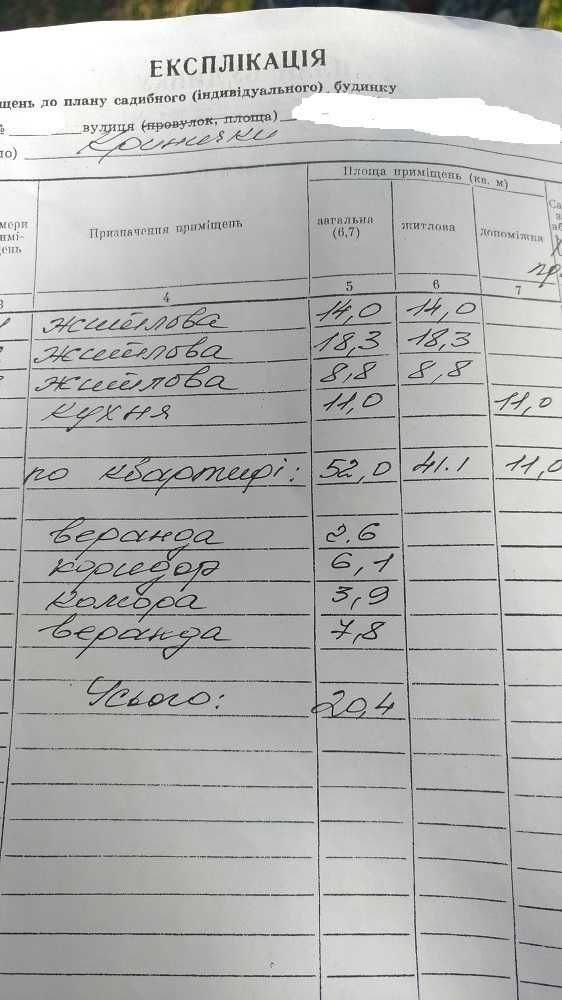 ЕКСПЛІКАЦІЯ
щень до плану садибного (індивідуального) будинку
№ вулиця (провулок, площа)
по) Кринички
Площа приміщень (кв. м)
мери
римі-
щень
Призначення приміщень
загальна
(6,7)
житлова
допоміжна
3 4 5 6 7
1 житлова 14,0 14,0
житлова 18,3 18,3
житлова 8,8 8,8
кухня 11,0 11,0
по квартирі: 52,0 41.1 11,0
веранда 2.6
коридор 6,1
комора 3,9
веранда 7,8
Усього: 20,4